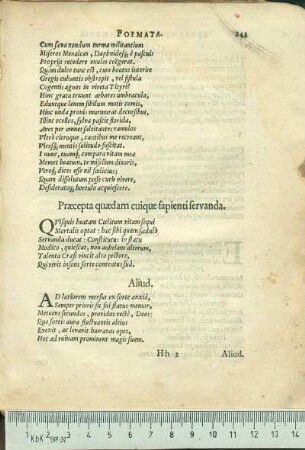 POEMATA. 243
Cum sæva nondum turma militantium
Miseros Monachos, Daphnidesq́; à pascuis
Proprijs recedere exules coëgerat.
Quam dulce tunc est, cum boatus interim
Gregis cubantis obstrepit, vel fistula
Cogentis agnos in vireta Tityri!
Hinc grata tranant arbores umbracula,
Eduntque lenem sibilum motis comis,
Hinc unda pronis murmurat decursibus,
Illinc ocellos, sylva pascit florida,
Aves per omnes saltitantes ramulos
Ultrò citroque, cantibus no recreant,
Viresq́; mentis solitudo suscitat.
I nunc, tuamq́; compara vitam mea
Memet beatum, te misellum dixeris,
Verùm, dices esse nil fœlicius;
Quàm dissolutum posse curis vivere,
Desideratoq́; hortulo acquiescere.
Præcepta quædam cuique sapienti servanda.
QUisquis beatam Cælitum vitam sequi
Mortalis optat: hæc sibi quàm sedulò
Servanda ducat: Constitutus in statu
Modico, quiescat, non anhelans alterum,
Talenta Crœsi vincit alto pectore,
Qui vivit insons sorte contentus suâ.
Aliud.
AD lætiorem versus ex sorte anxiâ,
Semper prioris sis tui status memor,
Metuens secundos, providus rectè, Deos:
Quo sortis aura fluctuantis altius
Evexit, ac levavit humanas opes,
Hoc ad ruinam prominent magis suam.
Hh 2 Aliud.
1 2 3 4 5 6 7 8 9 10 11 12 13 14 15 16 17 18 19